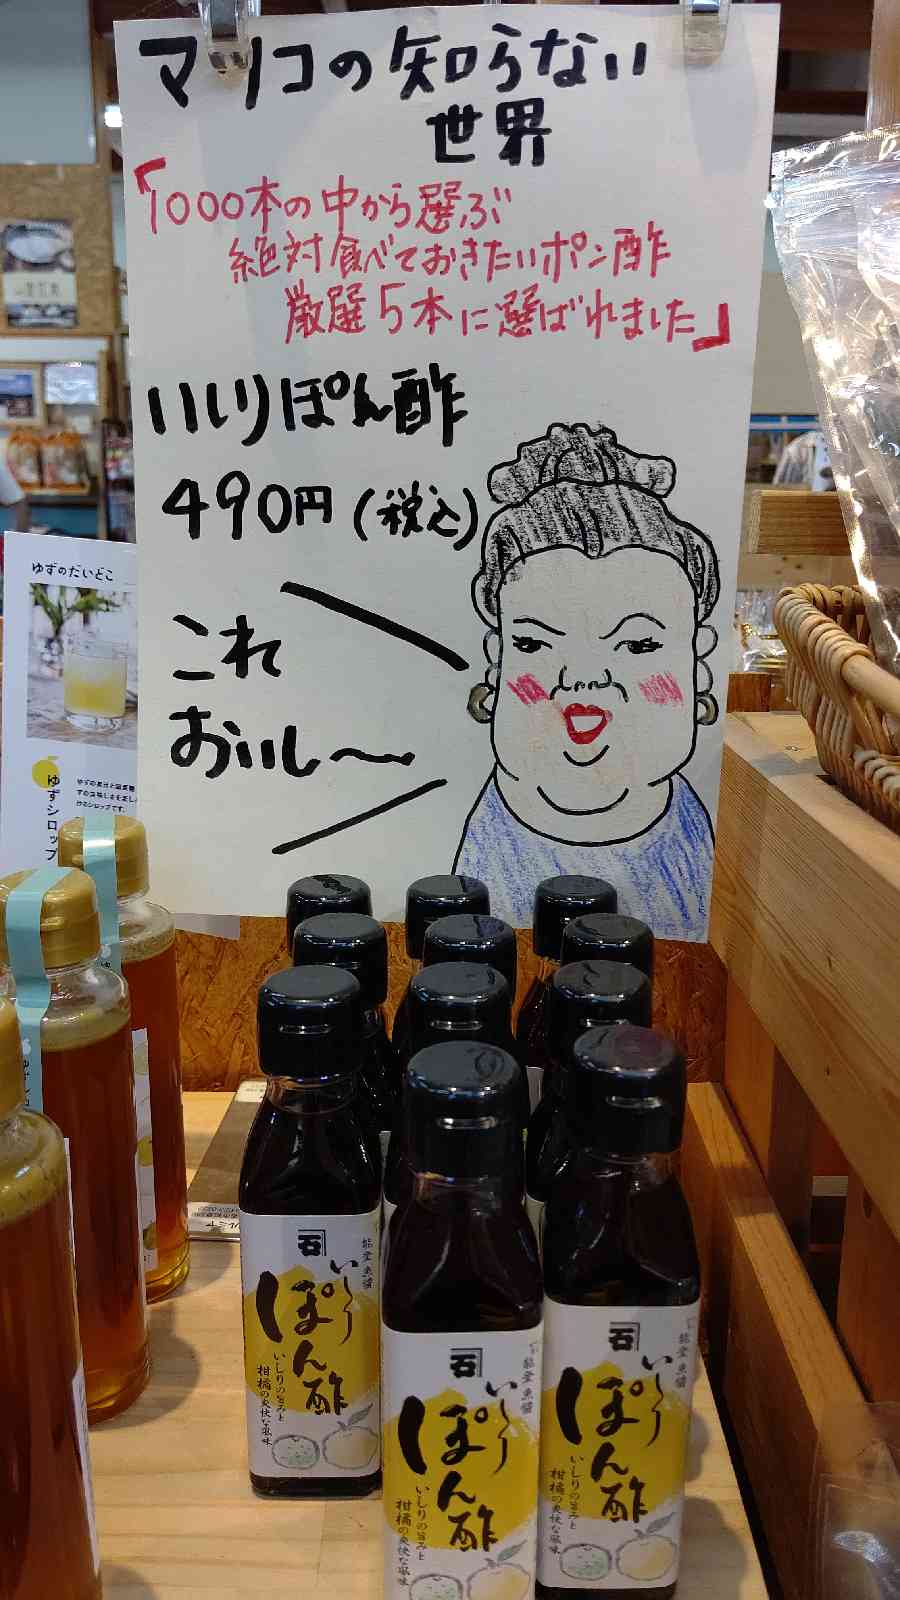 マツコの知らない
世界
「1000本の中から選ぶ
絶対食べておきたいポン酢
厳選5本に選ばれました」
いしりぽん酢
490円(税込)
これ
おいし〜
ゆずのだいどこ
ゆずシロップ
石
能登魚醤
いしり
ぽん酢
いしりの旨みと
柑橘の爽快な風味
石
能登魚醤
いしり
ぽん酢
いしりの旨みと
柑橘の爽快な風味
石
能登魚醤
いしり
ぽん酢
いしりの旨みと
柑橘の爽快な風味